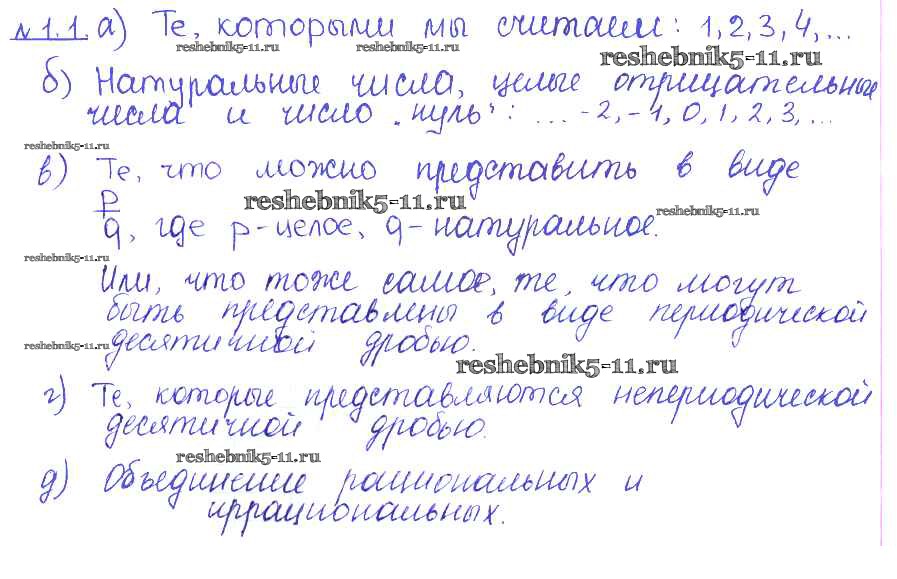 № 1.1. а) Те, которыми мы считаем: 1, 2, 3, 4, ...
reshebnik5-11.ru reshebnik5-11.ru reshebnik5-11.ru
б) Натуральные числа, целые отрицательные
числа и число „нуль": ... -2, -1, 0, 1, 2, 3, ...
reshebnik5-11.ru
в) Те, что можно представить в виде
p/q, где p-целое, q-натуральное.
reshebnik5-11.ru reshebnik5-11.ru
reshebnik5-11.ru
Или, что тоже самое, те, что могут
быть представлены в виде периодической
десятичной дробью.
reshebnik5-11.ru reshebnik5-11.ru
г) Те, которые представляются непериодической
десятичной дробью.
reshebnik5-11.ru
д) Объединение рациональных и
иррациональных.